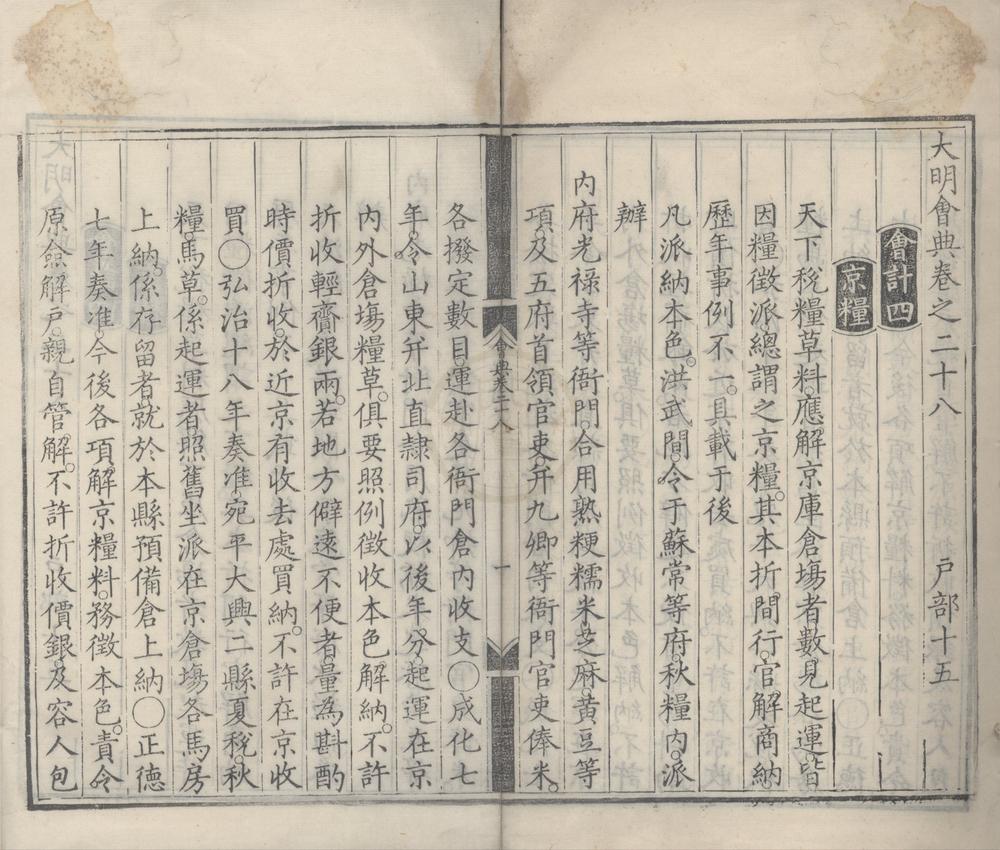 大明會典卷之二十八　戶部十五
會計四
京糧
天下稅糧草料應解京庫倉塲者數見起運皆
因糧徵派總謂之京糧其本折間行官解商納
歷年事例不一具載于後
凡派納本色洪武間令于蘇常等府秋糧內派
辦
內府光祿寺等衙門合用熟粳糯米芝麻黃豆等
項及五府首領官吏幷九卿等衙門官吏俸米
會典卷二十八
一
各撥定數目運赴各衙門倉內收支〇成化七
年令山東幷北直隸司府以後年分起運在京
內外倉塲糧草俱要照例徵收本色解納不許
折收輕齎銀兩若地方僻遠不便者量為斟酌
時價折收於近京有收去處買納不許在京收
買〇弘治十八年奏准宛平大興二縣夏稅秋
糧馬草係起運者照舊坐派在京倉塲各馬房
上納係存留者就於本縣預備倉上納〇正德
七年奏准今後各項解京糧料務徵本色責令
原僉解戶親自管解不許折收價銀及容人包